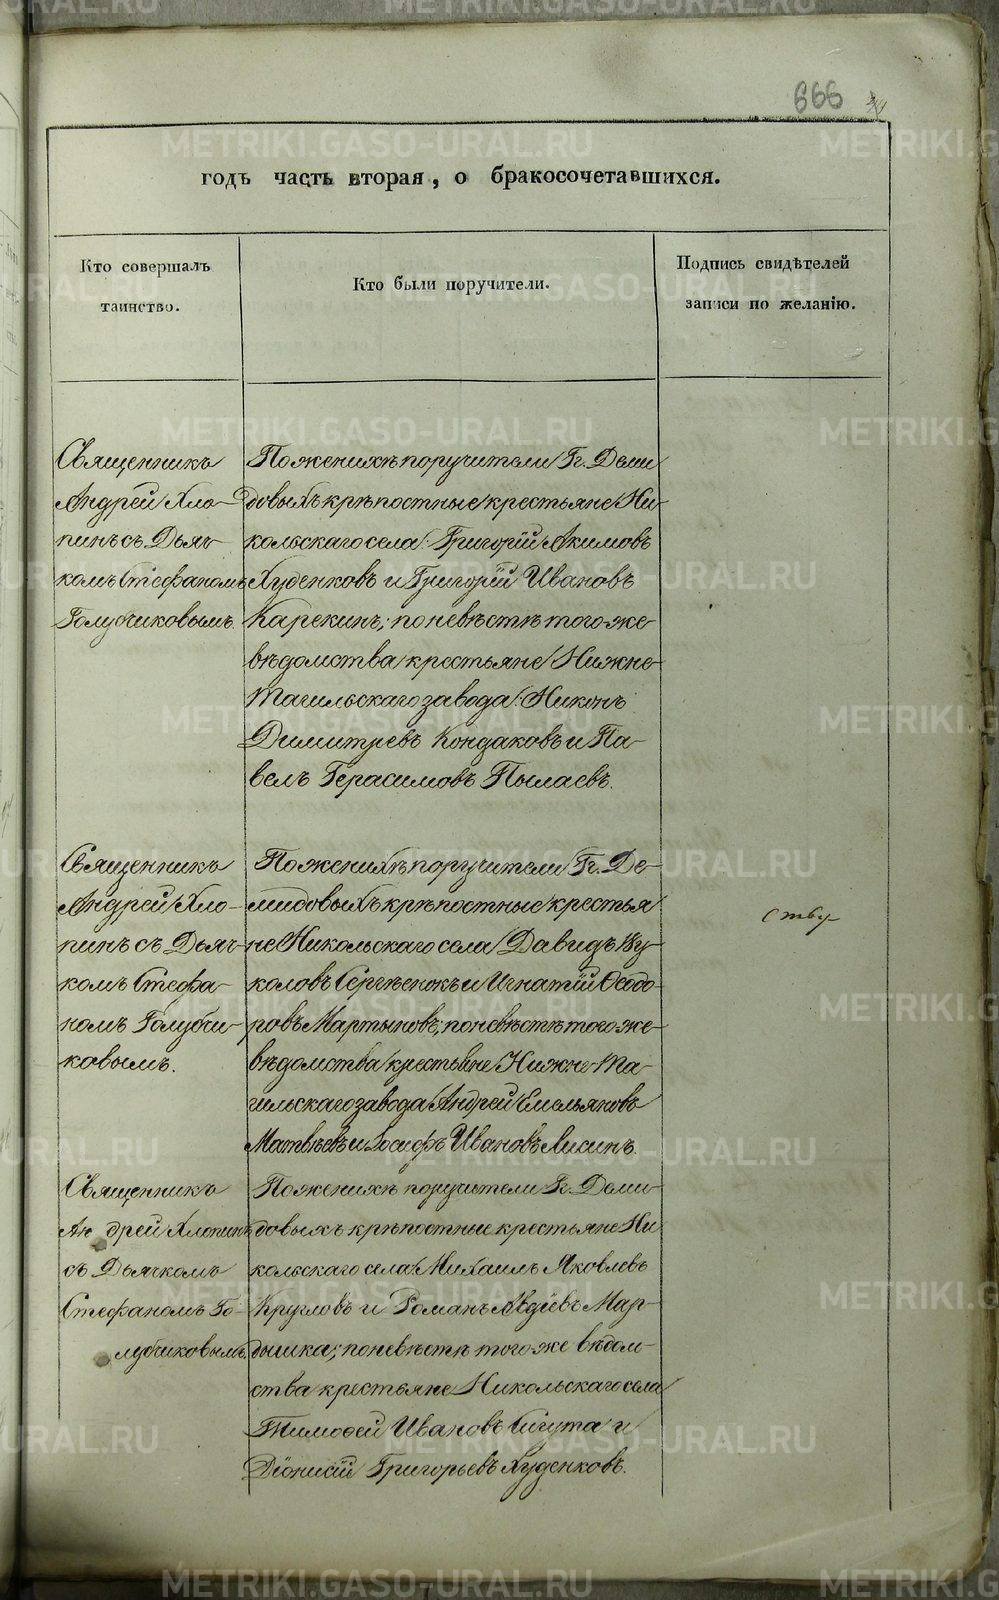 666
годъ часть вторая, о бракосочетавшихся.
Кто совершалъ
таинство.
Кто были поручители.
Подпись свидѣтелей
записи по желанію.
Священникъ
Андрей Хло-
пинъ съ Дьяч-
комъ Стефаномъ
Голубчиковымъ.
По женихѣ поручители Гг. Деми
довыхъ крѣпостные крестьяне Ни-
кольскаго села: Григорій Акимовъ
Худенковъ и Григорій Ивановъ
Карекинъ; по невѣстѣ того же
вѣдомства крестьяне Нижне-
тагильскаго завода: Никонъ
Димитревъ Кондаковъ и Па-
велъ Герасимовъ Пылаевъ.
Священникъ
Андрей Хло-
пинъ съ Дьяч-
комъ Стефа-
номъ Голубчи-
ковымъ.
По женихѣ поручители Гг. Де-
мидовыхъ крѣпостные крестья
не Никольскаго села Давидъ Ву
коловъ Сергѣенокъ и Игнатій Ѳеодо-
ровъ Мартыновъ; по невѣстѣ того же
вѣдомства крестьяне Нижне-Та-
гильскаго завода Андрей Емельяновъ
Матвѣевъ и Іосифъ Ивановъ Лисинъ.
Священникъ
Андрей Хлопинъ
съ Дьячкомъ
Стефаномъ Го-
лубчиковымъ.
По женихѣ поручители Гг. Деми-
довыхъ крѣпостные крестьяне Ни
кольскаго села Михаилъ Яковлевъ
Кругловъ и Романъ Авдіевъ Мар-
дышка; по невѣстѣ того же вѣдом-
ства крестьяне Никольскаго села
Тимоѳей Ивановъ Кигута и
Діонисій Григорьевъ Худенковъ.
METRIKI.GASO-URAL.RU